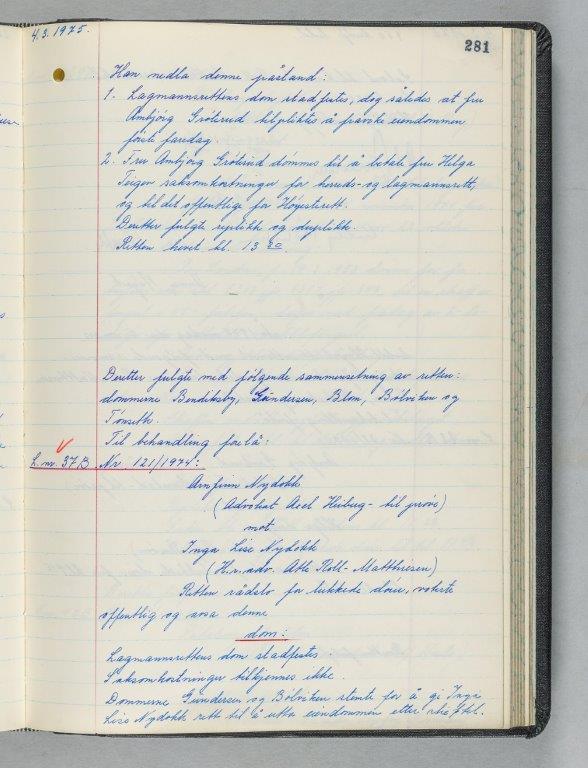 4.3. 1975.
281
Han nedla denne påstand:
1. Lagmannsrettens dom stadfestes, dog således at fru
Ambjørg Gróterud tilpliktes å fravike eiendommen
første faredag.
2. Fru Ambjørg Gróterud dømmes til å betale fru Helga
Teigen saksomkostninger for herreds- og lagmannsrett,
og til det offentlige for Høyesterett.
Deretter fulgte replikk og duplikk.
Retten hevet kl. 13 30.
Deretter fulgte med følgende sammensetning av retten:
dommerne Bendiksby, Gundersen, Blom, Bølviken og
Tønseth.
Til behandling forelå:
L. nr. 37 B. Nr. 121/1974:
Arnfinn Nydokk
(Advokat Axel Heiberg - til prøve)
mot
Inga Lise Nydokk
(H.r.adv. Atle Roll-Matthiesen)
Retten rådslo for lukkede dører, voterte
offentlig og avsa denne
dom:
Lagmannsrettens dom stadfestes.
Saksomkostninger tilkjennes ikke.
Dommerne Gundersen og Bølviken stemte for å gi Inga
Lise Nydokk rett til å utta eiendommen etter